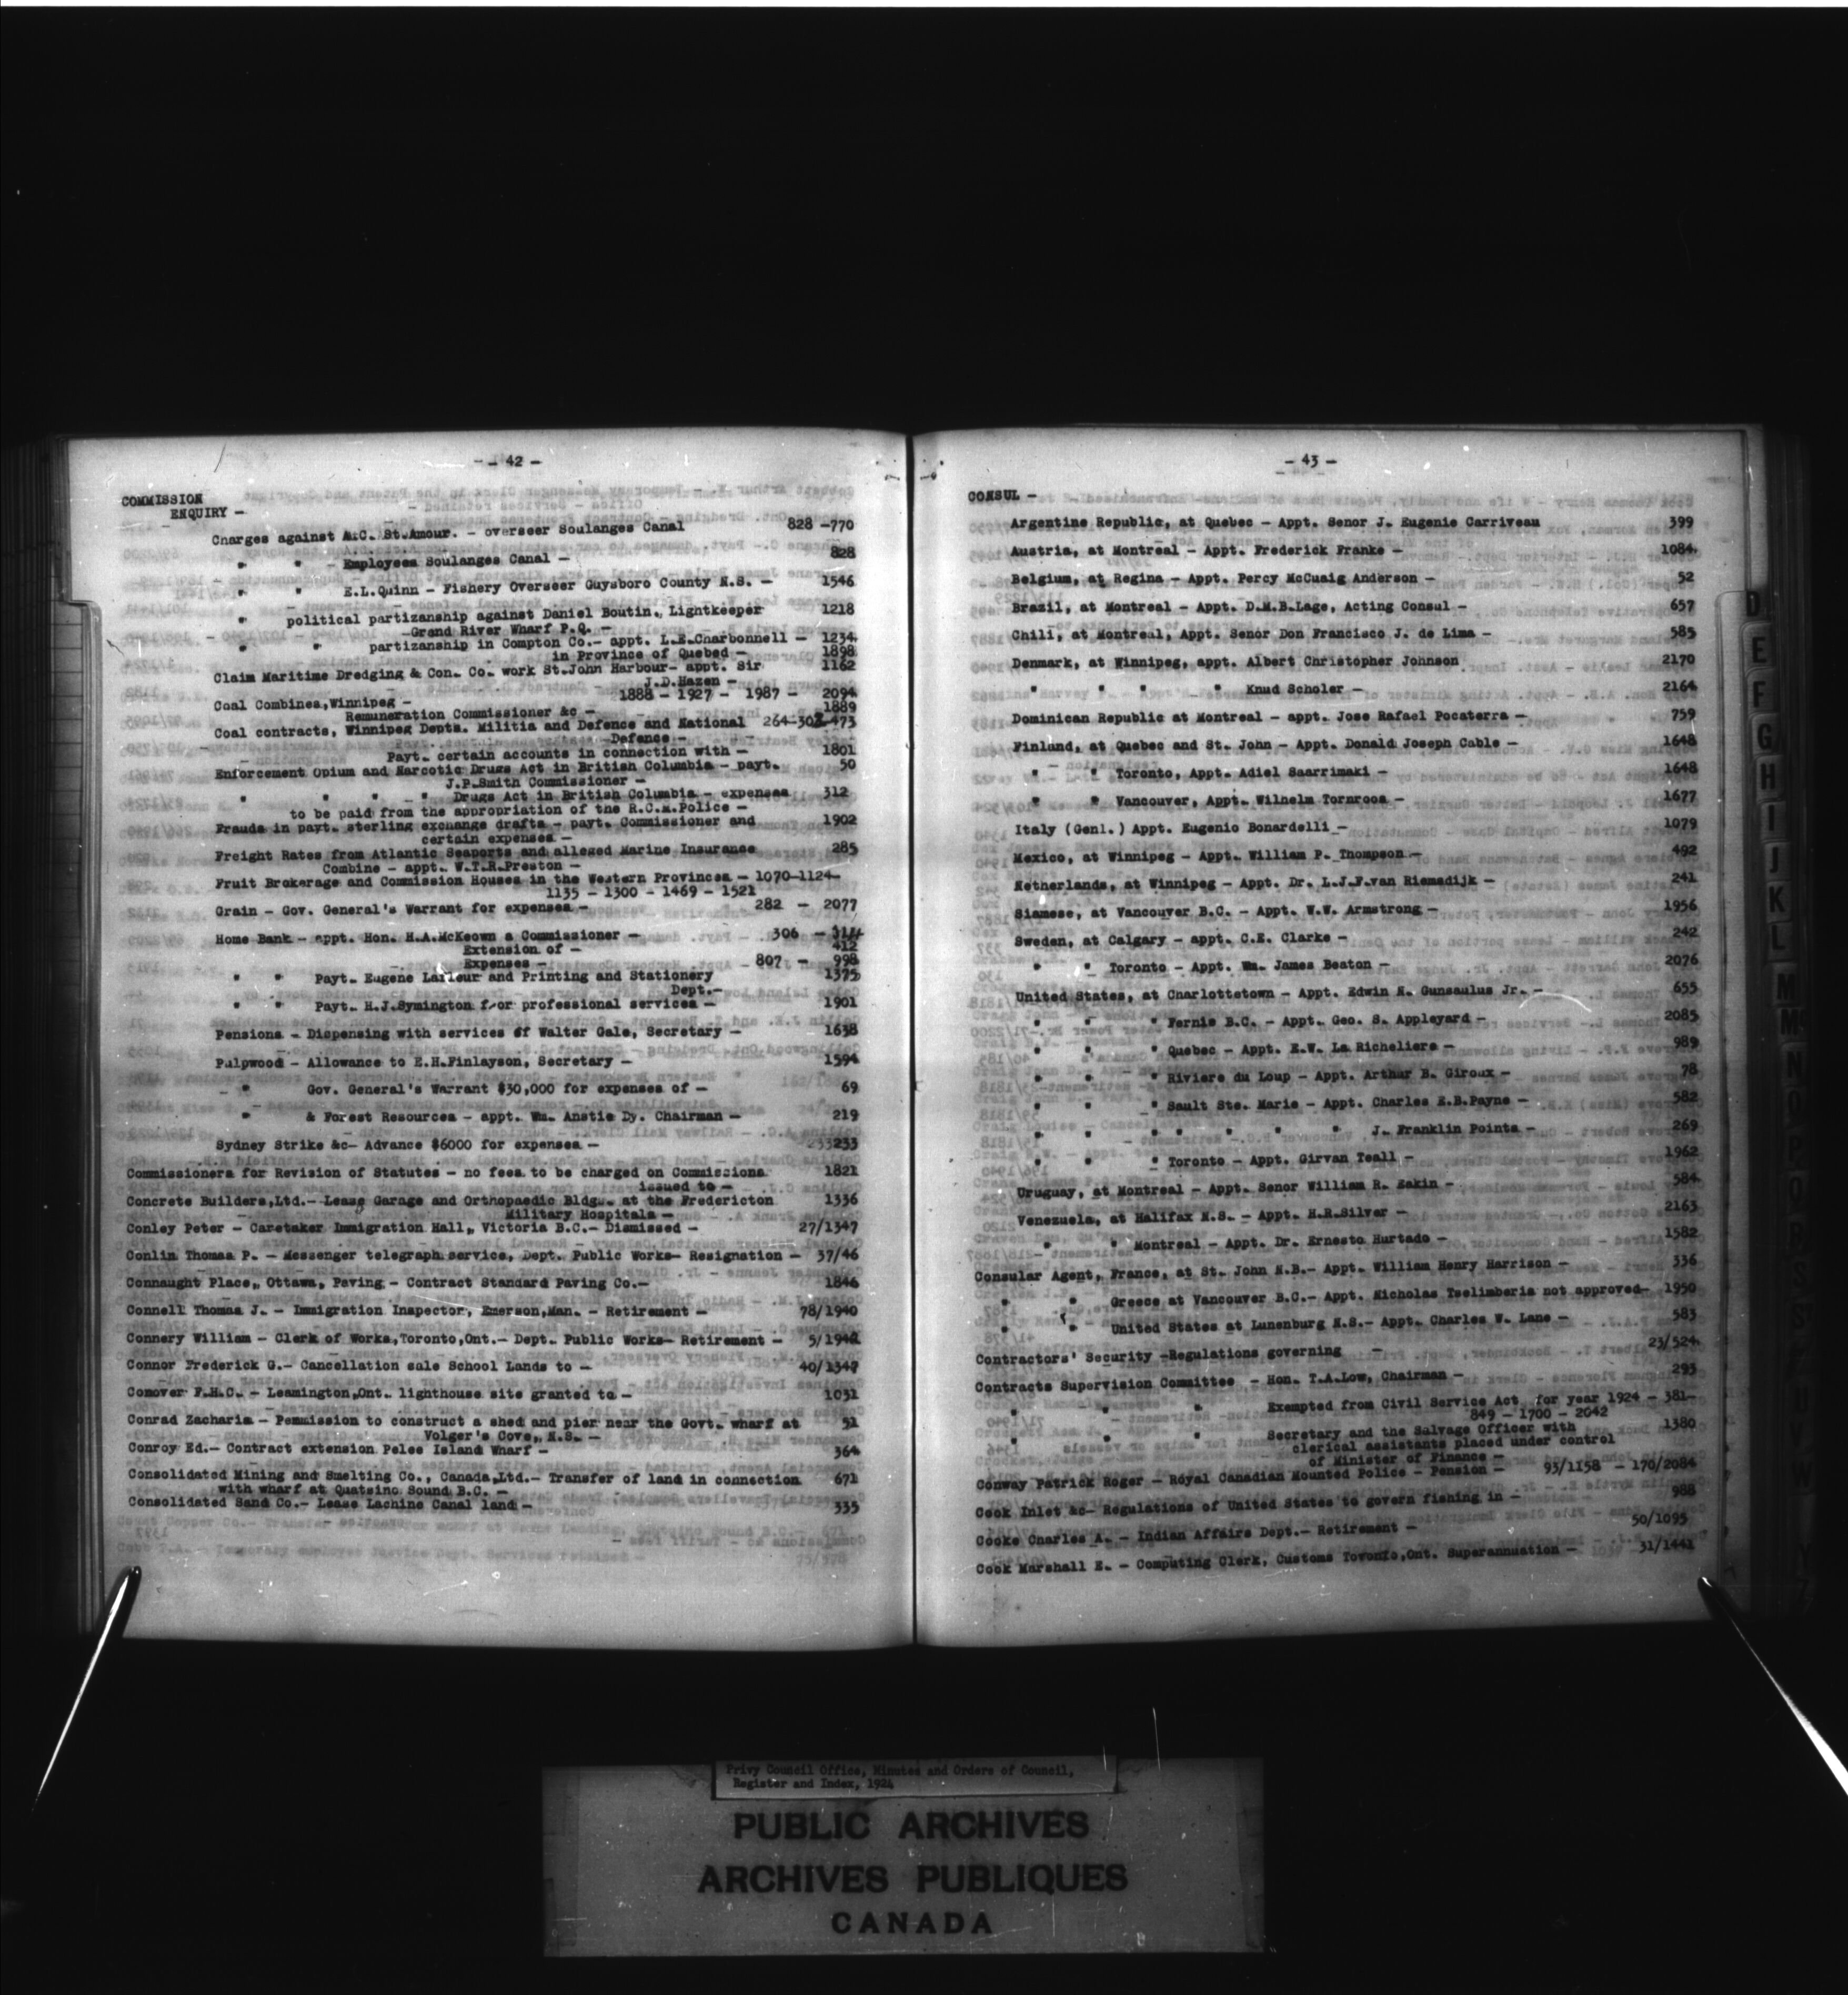 - 42 -
COMMISSION
ENQUIRY -
Charges against A.C. St.Amour. - overseer Soulanges Canal 828 -770
" " - Employees Soulanges Canal - 828
" " E.L.Quinn - Fishery Overseer Guysboro County N.S. - 1546
" political partizanship against Daniel Boutin, Lightkeeper 1218
Grand River Wharf P.Q. -
" " partizanship in Compton Co.- appt. L.E.Charbonnell - 1234
in Province of Quebed - 1898
Claim Maritime Dredging & Con. Co. work St.John Harbour- appt. Sir 1162
J.D.Hazen -
Coal Combines,Winnipeg - 1888 - 1927 - 1987 - 2094
Remuneration Commissioner &c - 1889
Coal contracts, Winnipeg Depts. Militia and Defence and National 264-302-473
Defence -
Payt. certain accounts in connection with - 1801
Enforcement Opium and Narcotic Drugs Act in British Columbia - payt. 50
J.P.Smith Commissioner -
" " " " Drugs Act in British Columbia - expenses 312
to be paid from the appropriation of the R.C.M.Police -
Frauds in payt. sterling exchange drafts - payt. Commissioner and 1902
certain expenses -
Freight Rates from Atlantic Seaports and alleged Marine Insurance 285
Combine - appt. W.T.R.Preston -
Fruit Brokerage and Commission Houses in the Western Provinces - 1070-1124-
1135 - 1300 - 1469 - 1521
Grain - Gov. General's Warrant for expenses - 282 - 2077
Home Bank - appt. Hon. H.A.McKeown a Commissioner - 306 -
Extension of - 412
Expenses - 807 - 998
" " Payt. Eugene Lafleur and Printing and Stationery 1375
Dept.-
" " Payt. H.J.Symington for professional services - 1901
Pensions - Dispensing with services of Walter Gale, Secretary - 1638
Pulpwood - Allowance to E.H.Finlayson, Secretary - 1594
" Gov. General's Warrant $30,000 for expenses of - 69
" & Forest Resources - appt. Wm. Anstie Dy. Chairman - 219
Sydney Strike &c- Advance $6000 for expenses - 233
Commissioners for Revision of Statutes - no fees to be charged on Commissions 1821
issued to -
Concrete Builders,Ltd.- Lease Garage and Orthopaedic Bldg. at the Fredericton 1336
Military Hospitals -
Conley Peter - Caretaker Immigration Hall, Victoria B.C.- Dismissed - 27/1347
Conlin Thomas P. - Messenger telegraph service, Dept. Public Works- Resignation - 37/46
Connaught Place, Ottawa, Paving - Contract Standard Paving Co.- 1846
Connell Thomas J. - Immigration Inspector, Emerson,Man. - Retirement - 78/1940
Connery William - Clerk of Works,Toronto,Ont.- Dept. Public Works- Retirement - 5/1940
Connor Frederick G.- Cancellation sale School Lands to - 40/1347
Conover F.H.C. - Leamington,Ont. lighthouse site granted to - 1031
Conrad Zacharia - Pemmission to construct a shed and pier near the Govt. wharf at 51
Volger's Cove, N.S. -
Conroy Ed.- Contract extension Pelee Island Wharf - 364
Consolidated Mining and Smelting Co., Canada,Ltd.- Transfer of land in connection 671
with wharf at Quatsino Sound B.C. -
Consolidated Sand Co.- Lease Lachine Canal land - 335
- 43 -
CONSUL -
Argentine Republic, at Quebec - Appt. Senor J. Eugenie Carriveau 399
Austria, at Montreal - Appt. Frederick Franke - 1084
Belgium, at Regina - Appt. Percy McCuaig Anderson - 52
Brazil, at Montreal - Appt. D.M.B.Lage, Acting Consul - 657
Chili, at Montreal, Appt. Senor Don Francisco J. de Lima - 585
Denmark, at Winnipeg, appt. Albert Christopher Johnson 2170
" " " " Knud Scholer - 2164
Dominican Republic at Montreal - appt. Jose Rafael Pocaterra - 759
Finlund, at Quebec and St. John - Appt. Donald Joseph Cable - 1648
" " Toronto, Appt. Adiel Saarrimaki - 1648
" " Vancouver, Appt. Wilhelm Tornroos - 1677
Italy (Genl.) Appt. Eugenio Bonardelli - 1079
Mexico, at Winnipeg - Appt. William P. Thompson - 492
Netherlands, at Winnipeg - Appt. Dr. L.J.F.van Riemsdijk - 241
Siamese, at Vancouver B.C. - Appt. W.W. Armstrong - 1956
Sweden, at Calgary - appt. C.E. Clarke - 242
" " Toronto - Appt. Wm. James Beaton - 2076
United States, at Charlottetown - Appt. Edwin N. Gunsaulus Jr. - 655
" " " Fernie B.C. - Appt. Geo. S. Appleyard - 2085
" " " Quebec - Appt. E.W. La Richeliere - 989
" " " Riviere du Loup - Appt. Arthur B. Giroux - 78
" " " Sault Ste. Marie - Appt. Charles E.B.Payne - 582
" " " " " " " J. Franklin Points - 269
" " " Toronto - Appt. Girvan Teall - 1962
Uruguay, at Montreal - Appt. Senor William R. Eakin - 584
Venezuela, at Halifax N.S. - Appt. H.R.Silver - 2163
" " Montreal - Appt. Dr. Ernesto Hurtado - 1582
Consular Agent, France, at St. John N.B.- Appt. William Henry Harrison - 336
" " Greece at Vancouver B.C.- Appt. Nicholas Tselimberis not approved- 1950
" " United States at Lunenburg N.S.- Appt. Charles W. Lane - 583
Contractors' Security -Regulations governing - 23/524
Contracts Supervision Committee - Hon. T.A.Low, Chairman - 293
" " " Exempted from Civil Service Act for year 1924 - 381-
849 - 1700 - 2042
" " " Secretary and the Salvage Officer with 1380
clerical assistants placed under control
of Minister of Finance -
Conway Patrick Roger - Royal Canadian Mounted Police - Pension - 93/1158 - 170/2084
Cook Inlet &c- Regulations of United States to govern fishing in - 988
Cooke Charles A. - Indian Affairs Dept.- Retirement - 50/1095
Cook Marshall E. - Computing Clerk, Customs Toronto,Ont. Superannuation - 31/1441
D
E
F
G
H
I
J
K
L
M
Privy Council Office, Minutes and Orders of Council,
Register and Index, 1924
PUBLIC ARCHIVES
ARCHIVES PUBLIQUES
CANADA